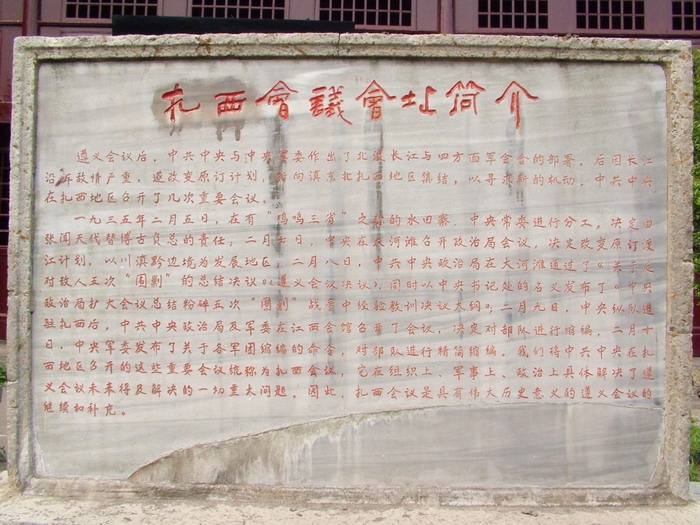 扎西會議會址简介
遵义会议后，中共中央与中央军委作出了北渡长江与四方面军会合的部署，后因长江
沿岸敌情严重，遂改变原订计划，转向滇东北扎西地区集结，以寻求新的机动，中共中央
在扎西地区召开了几次重要会议。
一九三五年二月五日，在有"鸡鸣三省"之称的水田寨，中央常委进行分工，决定由
张闻天代替博古负总的责任，二月七日，中央在大河滩召开政治局会议，决定改变原订渡
江计划，以川滇黔边境为发展地区，二月八日，中共中央政治局在大河滩通过了《关于反
对敌人五次"围剿"的总结决议》（遵义会议决议），同时以中央书记处的名义发布了《中央
政治局扩大会议总结粉碎五次"围剿"战争中经验教训决议大纲》；二月九日，中央纵队进
驻扎西后，中共中央政治局及军委在江西会馆召开了会议，决定对部队进行缩编，二月十
日，中央军委发布了关于各军团缩编的命令，对部队进行精简缩编。我们将中共中央在扎
西地区召开的这些重要会议统称为扎西会议，它在组织上、军事上、政治上具体解决了遵
义会议未来得及解决的一切重大问题。因此，扎西会议是具有伟大历史意义的遵义会议的
继续和补充。